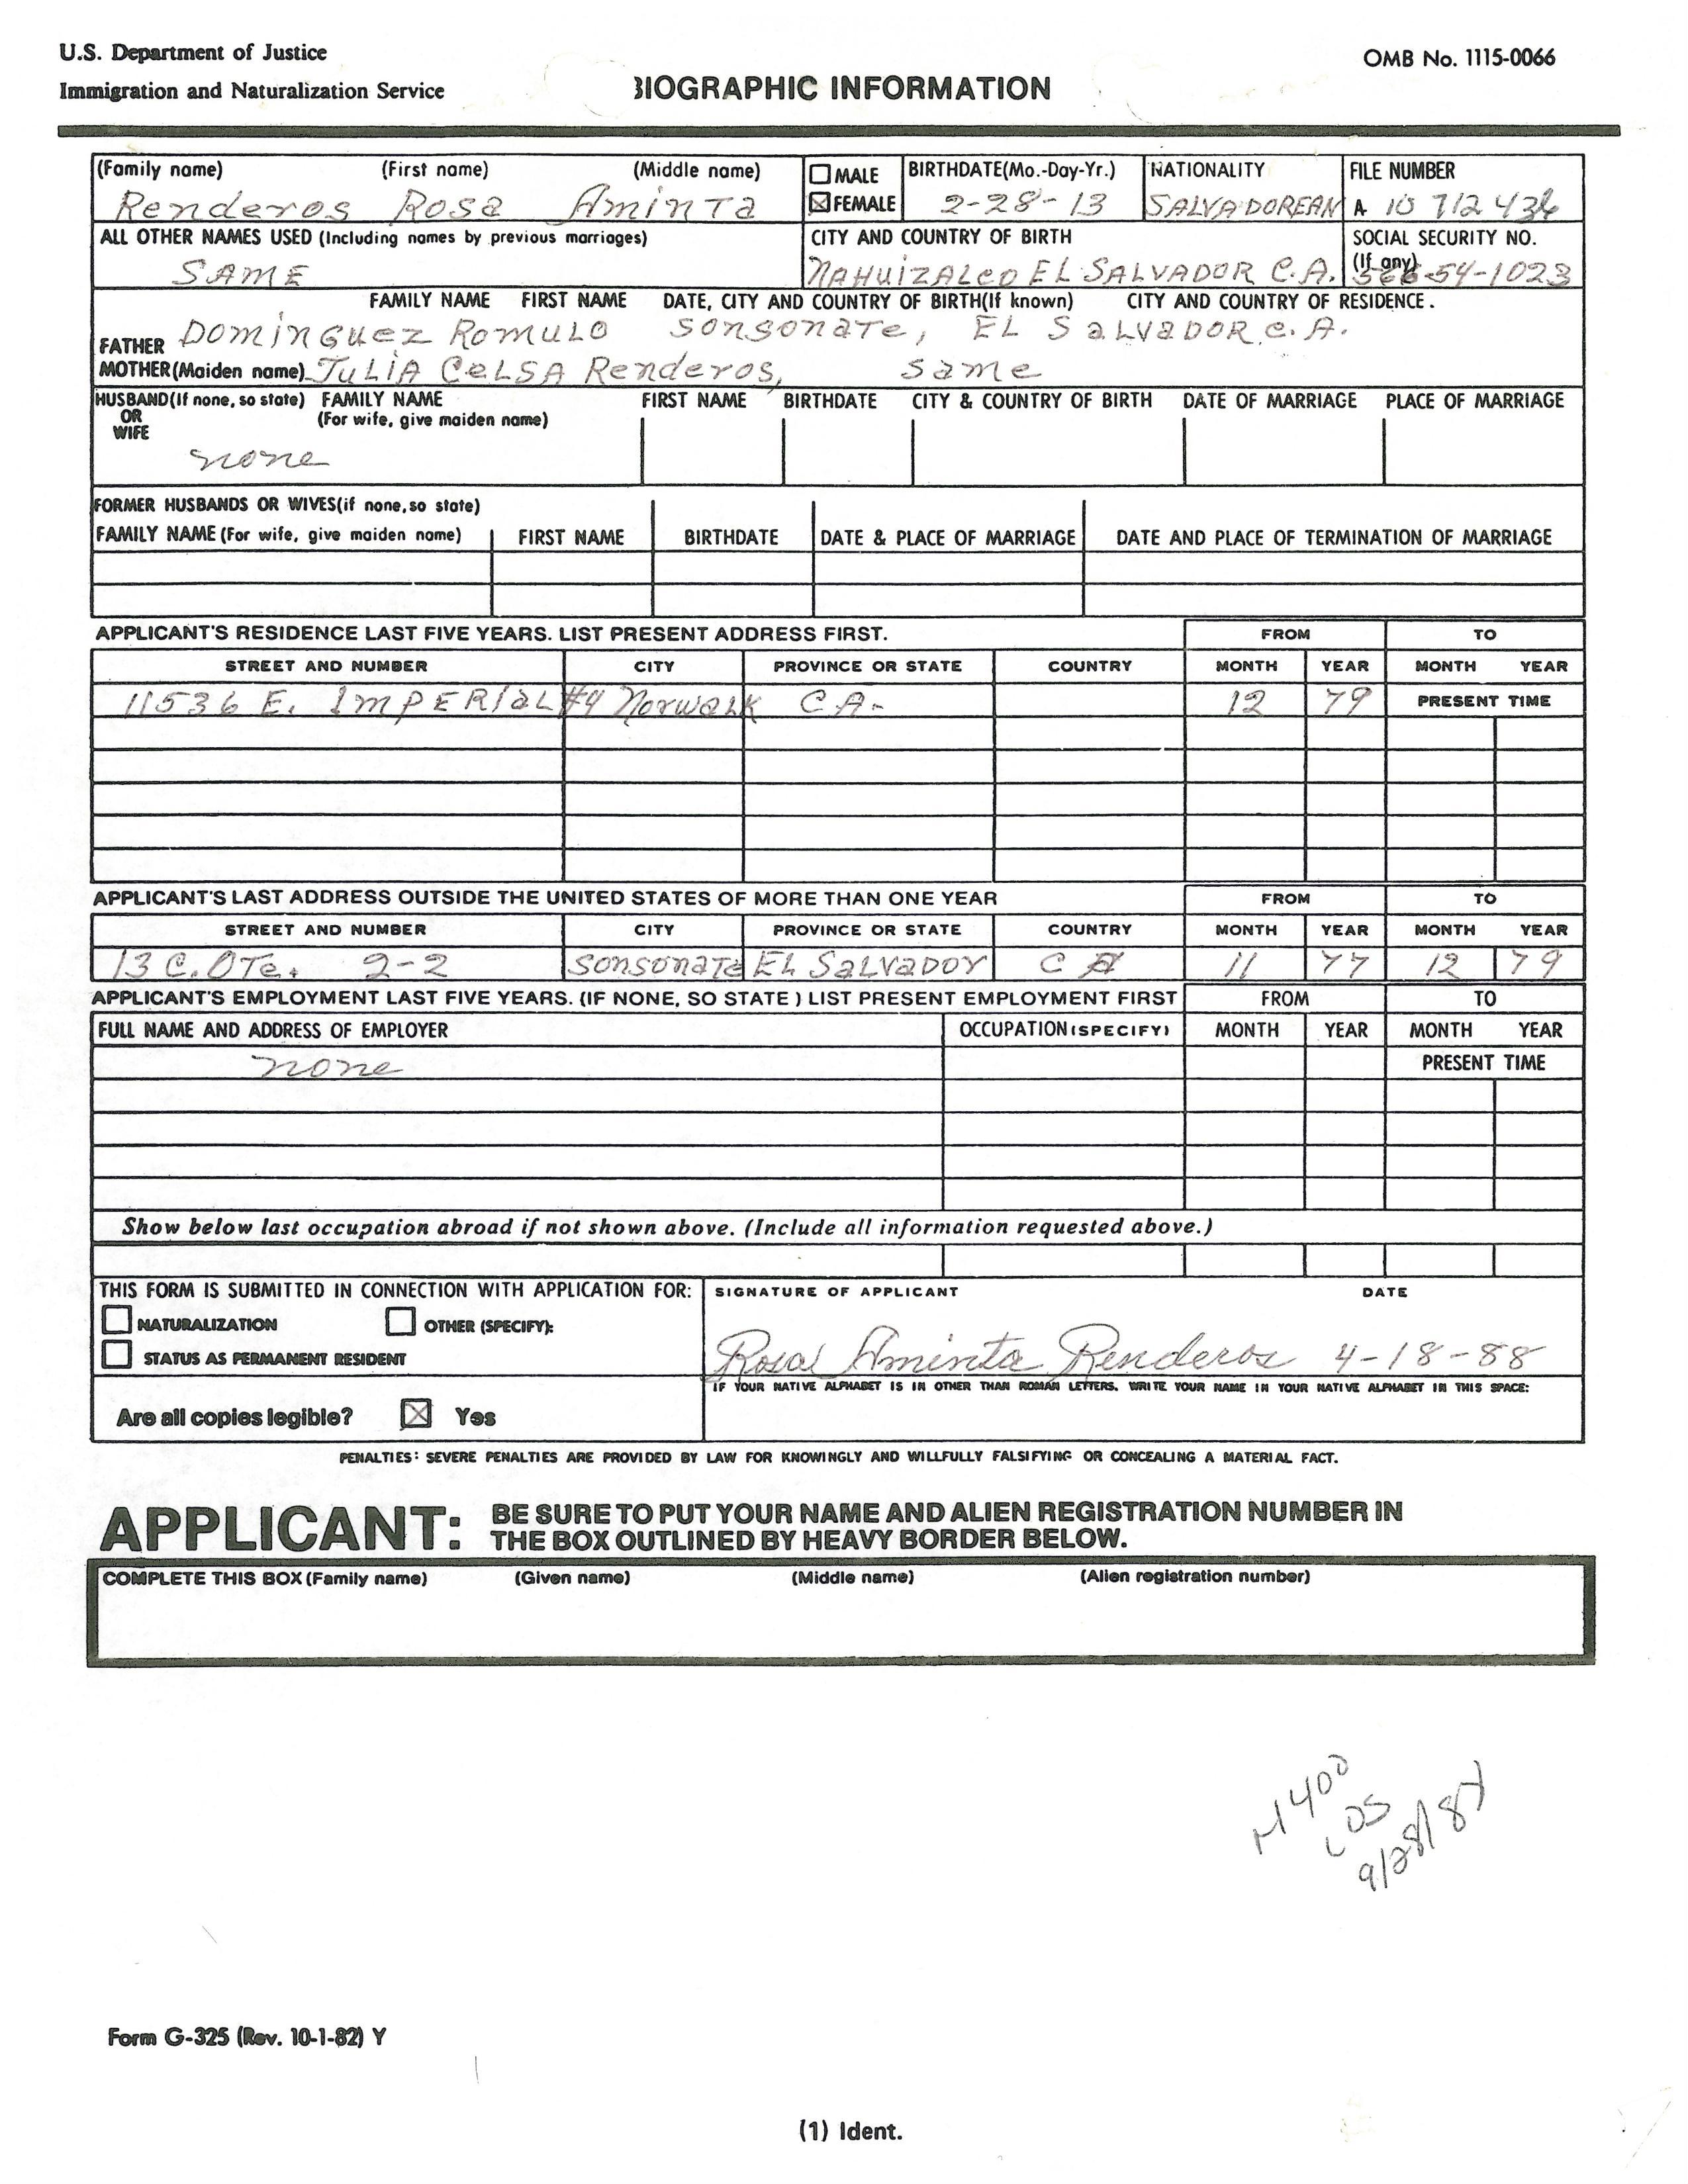 U.S. Department of Justice
OMB No. 1115-0066
Immigration and Naturalization Service
BIOGRAPHIC INFORMATION
(Family name) (First name) (Middle name) MALE BIRTHDATE(Mo.-Day-Yr.) NATIONALITY FILE NUMBER
Renderos Rosa Aminta FEMALE 2-28-13 SALVADOREAN A 10 712 436
ALL OTHER NAMES USED (Including names by previous marriages) CITY AND COUNTRY OF BIRTH SOCIAL SECURITY NO.
(If any)
SAME NAHUIZALCO EL SALVADOR C.A. 566-54-1023
FAMILY NAME FIRST NAME DATE, CITY AND COUNTRY OF BIRTH(If known) CITY AND COUNTRY OF RESIDENCE.
FATHER DOMINGUEZ ROMULO SONSONATE, EL SALVADOR C.A.
MOTHER(Maiden name) JULIA CELSA Renderos, same
HUSBAND(If none, so state) FAMILY NAME FIRST NAME BIRTHDATE CITY & COUNTRY OF BIRTH DATE OF MARRIAGE PLACE OF MARRIAGE
OR (For wife, give maiden name)
WIFE
none
FORMER HUSBANDS OR WIVES(if none, so state)
FAMILY NAME (For wife, give maiden name) FIRST NAME BIRTHDATE DATE & PLACE OF MARRIAGE DATE AND PLACE OF TERMINATION OF MARRIAGE
APPLICANT'S RESIDENCE LAST FIVE YEARS. LIST PRESENT ADDRESS FIRST. FROM TO
STREET AND NUMBER CITY PROVINCE OR STATE COUNTRY MONTH YEAR MONTH YEAR
11536 E. IMPERIAL #4 Norwalk C A- 12 79 PRESENT TIME
APPLICANT'S LAST ADDRESS OUTSIDE THE UNITED STATES OF MORE THAN ONE YEAR FROM TO
STREET AND NUMBER CITY PROVINCE OR STATE COUNTRY MONTH YEAR MONTH YEAR
13 C. OTe. 2-2 SONSONATE EL SALVADOR C A 11 77 12 79
APPLICANT'S EMPLOYMENT LAST FIVE YEARS. (IF NONE, SO STATE ) LIST PRESENT EMPLOYMENT FIRST FROM TO
FULL NAME AND ADDRESS OF EMPLOYER OCCUPATION (SPECIFY) MONTH YEAR MONTH YEAR
none PRESENT TIME
Show below last occupation abroad if not shown above. (Include all information requested above.)
THIS FORM IS SUBMITTED IN CONNECTION WITH APPLICATION FOR: SIGNATURE OF APPLICANT DATE
NATURALIZATION OTHER (SPECIFY):
STATUS AS PERMANENT RESIDENT
Rosa Aminta Renderos 4-18-88
IF YOUR NATIVE ALPHABET IS IN OTHER THAN ROMAN LETTERS, WRITE YOUR NAME IN YOUR NATIVE ALPHABET IN THIS SPACE:
Are all copies legible? Yes
PENALTIES: SEVERE PENALTIES ARE PROVIDED BY LAW FOR KNOWINGLY AND WILLFULLY FALSIFYING OR CONCEALING A MATERIAL FACT.
APPLICANT: BE SURE TO PUT YOUR NAME AND ALIEN REGISTRATION NUMBER IN
THE BOX OUTLINED BY HEAVY BORDER BELOW.
COMPLETE THIS BOX (Family name) (Given name) (Middle name) (Alien registration number)
LOS
Form G-325 (Rev. 10-1-82) Y
(1) Ident.